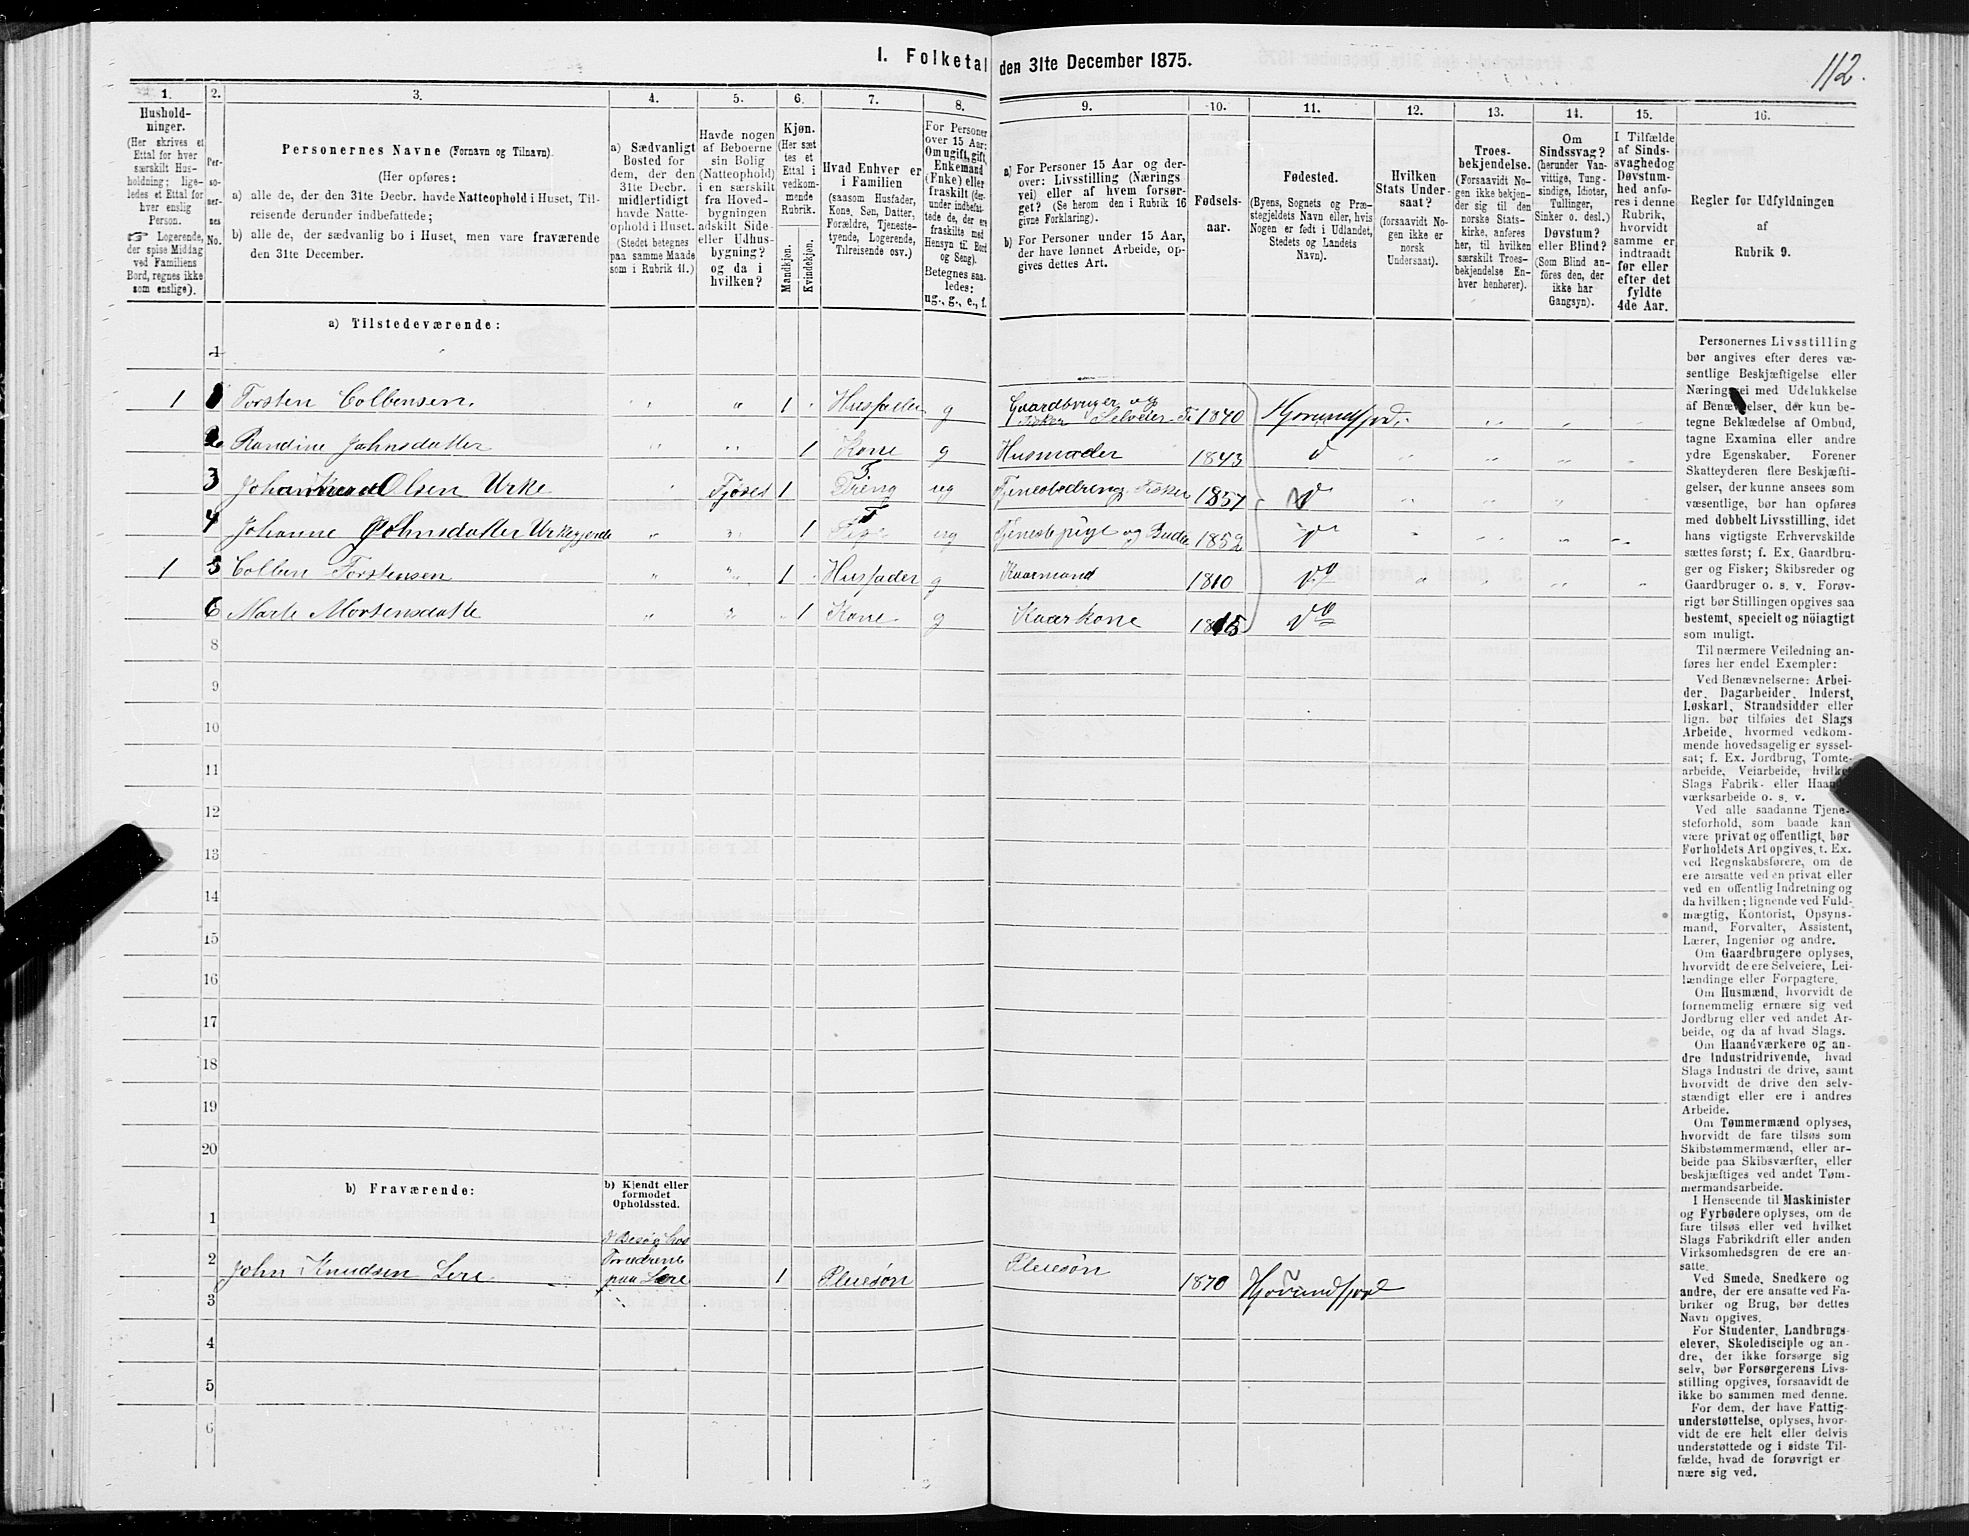 112.
I. Folketal den 31te December 1875.
1. 2. 3. 4. 5. 6. 7. 8. 9. 10. 11. 12. 13. 14. 15. 16.
Hushold-
ninger.
(Her skrives et
Ettal for hver
særskilt Hus-
holdning; lige-
ledes et Ettal for
hver enslig
Person.
☞ Logerende,
der spise Middag
ved Familiens
Bord, regnes ikke
som enslige).
Per-
so-
ner-
nes
No.
Personernes Navne (Fornavn og Tilnavn).
(Her opføres:
a) alle de, der den 31te Decbr. havde Natteophold i Huset, Til-
reisende derunder indbefattede;
b) alle de, der sædvanlig bo i Huset, men vare fraværende
den 31te December.
a) Sædvanligt
Bosted for
dem, der den
31te Decbr.
midlertidigt
havde Natte-
ophold i Huset.
(Stedet betegnes
paa samme Maade
som i Rubrik 11.)
Havde nogen
af Beboerne
sin Bolig
(Natteophold)
i en særskilt
fra Hoved-
bygningen
adskilt Side-
eller Udhus-
bygning?
og da i
hvilken?
Kjøn.
(Her sæt-
tes et
Ettal i
vedkom-
mende
Rubrik.
Mandkjøn.
Kvindekjøn.
Hvad Enhver er
i Familien
(saasom Husfader,
Kone, Søn, Datter,
Forældre, Tjeneste-
tyende, Logerende,
Tilreisende osv.)
For Personer
over 15 Aar:
Om ugift, gift,
Enkemand
(Enke) eller
fraskilt (der-
under indbefat-
tede de, der ere
fraskilte med
Hensyn til Bord
og Seng).
Betegnes saa-
ledes:
ug., g., e., f.
a) For Personer 15 Aar og der-
over: Livsstilling (Nærings-
vei) eller af hvem forsør-
get? (Se herom den i Rubrik 16
givne Forklaring).
b) For Personer under 15 Aar,
der have lønnet Arbeide, op-
gives dettes Art.
Fødsels-
aar.
Fødested.
(Byens, Sognets og Præ-
stegjeldets Navn eller, hvis
Nogen er født i Udlandet,
Stedets og Landets
Navn).
Hvilken
Stats Under-
saat?
(forsaavidt No-
gen ikke er
norsk
Undersaat).
Troes-
bekjendelse.
(Forsaavidt No-
gen ikke bekjen-
der sig til den
norske Stats-
kirke, anføres
her, til hvilken
særskilt Troes-
bekjendelse En-
hver henhører).
Om
Sindssvag?
(herunder Van-
vittige, Tung-
sindige, Idioter,
Tullinger,
Sinker o. desl.)
Døvstum?
eller Blind?
(Som Blind an-
føres den, der
ikke har
Gangsyn).
I Tilfælde
af Sinds-
svaghed og
Døvstum-
hed anfø-
res i denne
Rubrik,
hvorvidt
samme er
indtraadt
før eller
efter det
fyldte
4de Aar.
Regler for Udfyldningen
af
Rubrik 9.
a) Tilstedeværende:
1 1 Torsten Colbensen. 1 Husfader g Gaardbruger og Fisker Selveier 1840 Hjørundfjord
2 Randine Johnsdatter 1 Kone g Husmoder 1843 d
3 Olsen Urke Fjøset 1 T Dreng ug Tjenestedreng Fisker 1857 d
4 Johanne Johnsdatter 1 T Pige ug Tjenestepige og Budeie 1852 d
1 5 Colben Torstensen 1 Husfader g Kaarmand 1810 do
6 Marte Mortensdatte 1 Kone g Kaarkone 1815 do
8
9
10
11
12
13
14
15
16
17
18
19
20
b) Fraværende:
b) Kjendt eller
formodet
Opholdssted.
1
2 John Knudsen Lere Besøg hos Foreldrene paa Lere 1 Pleiesøn Pleiesøn 1870 Hjørundfjord
3
4
5
6
Personernes Livsstilling
bør angives efter deres væ-
sentlige Beskjæftigelse eller
Næringsvei med Udelukkelse
af Benævnelser, der kun be-
tegne Beklædelse af Ombud,
tagne Examina eller andre
ydre Egenskaber. Forener
Skatteyderen flere Beskjæfti-
gelser, der kunne ansees som
væsentlige, bør han opføres
med dobbelt Livsstilling, idet
hans vigtigste Erhvervskilde
sættes først; f. Ex. Gaardbru-
ger og Fisker; Skibsreder og
Gaardbruger o. s. v. Forøv-
rigt bør Stillingen opgives saa
bestemt, specielt og nöiagtigt
som muligt.
Til nærmere Veiledning an-
føres her endel Exempler:
Ved Benævnelserne: Arbei-
der, Dagarbeider, Inderst,
Løskarl, Strandsidder eller
lign. bør tilføies det Slags
Arbeide, hvormed vedkom-
mende hovedsagelig er syssel-
sat; f. Ex. Jordbrug, Tomte-
arbeide, Veiarbeide, hvilket
Slags Fabrik- eller Haand-
værksarbeide o. s. v.
Ved alle saadanne Tjene-
steforhold, som baade kan
være privat og offentligt, bør
Forholdets Art opgives, t. Ex.
ved Regnskabsførere, om de
ere ansatte ved en privat eller
ved en offentlig Indretning og
da hvilken; lignende ved Fuld-
mægtig, Kontorist, Opsyns-
mand, Forvalter, Assistent,
Lærer, Ingeniør og andre.
Om Gaardbrugere oplyses,
hvorvidt de ere Selveiere, Lei-
lændinge eller Forpagtere.
Om Husmænd, hvorvidt de
fornemmelig ernære sig ved
Jordbrug eller ved andet Ar-
beide, og da af hvad Slags.
Om Haandværkere og an-
dre Industridrivende, hvad
Slags Industri de drive, samt
hvorvidt de drive den selv-
stændigt eller ere i andres
Arbeide.
Om Tømmermænd oplyses,
hvorvidt de fare tilsøs som
Skibstømmermænd, eller ar-
beide paa Skibsværfter, eller
beskjæftiges ved andet Tøm-
mermandsarbeide.
I Henseende til Maskinister
og Fyrbødere oplyses, om de
fare tilsøs eller ved hvilket
Slags Fabrikdrift eller anden
Virksomhedsgren de ere an-
satte.
Ved Smede, Snedkere og
andre, der ere ansatte ved Fa-
briker og Brug, bør dettes
Navn opgives.
For Studenter, Landbrugs-
elever, Skoledisciple og an-
dre, der ikke forsørge sig
selv, bør Forsørgerens Livs-
stilling opgives, forsaavidt de
ikke bo sammen med denne.
For dem, der have Fattig-
understøttelse, oplyses, hvor-
vidt de ere helt eller delvis
understøttede og i sidste Til-
fælde, hvad de forøvrigt er-
nære sig ved.